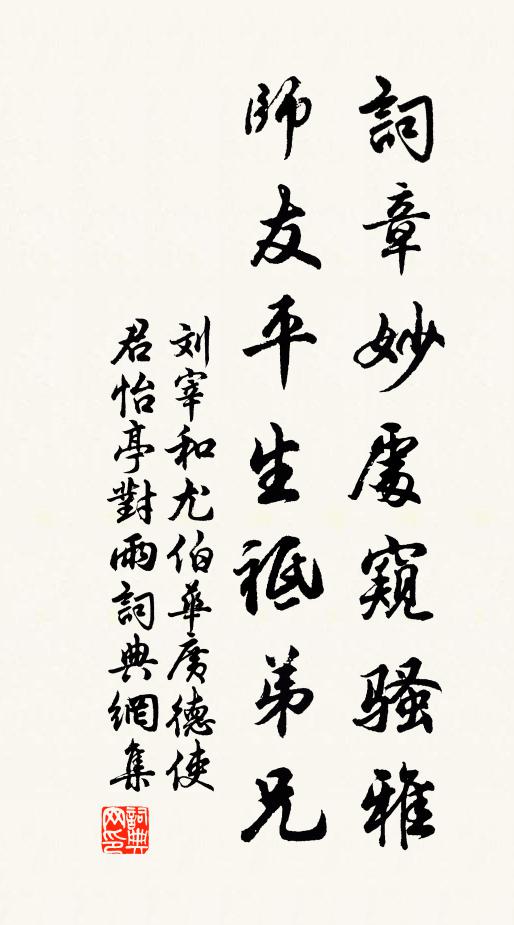 詞章妙處窺騷雅
師友平生祗弟兄
刘宰和尤伯華廣德使
君怡亭對雨詞典網集
詞典
网印